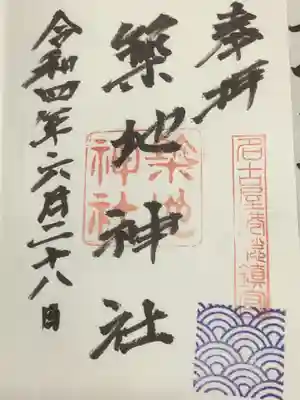 奉拝
名古屋港鎮守
築地神社
築地
神社
令和四年六月二十八日